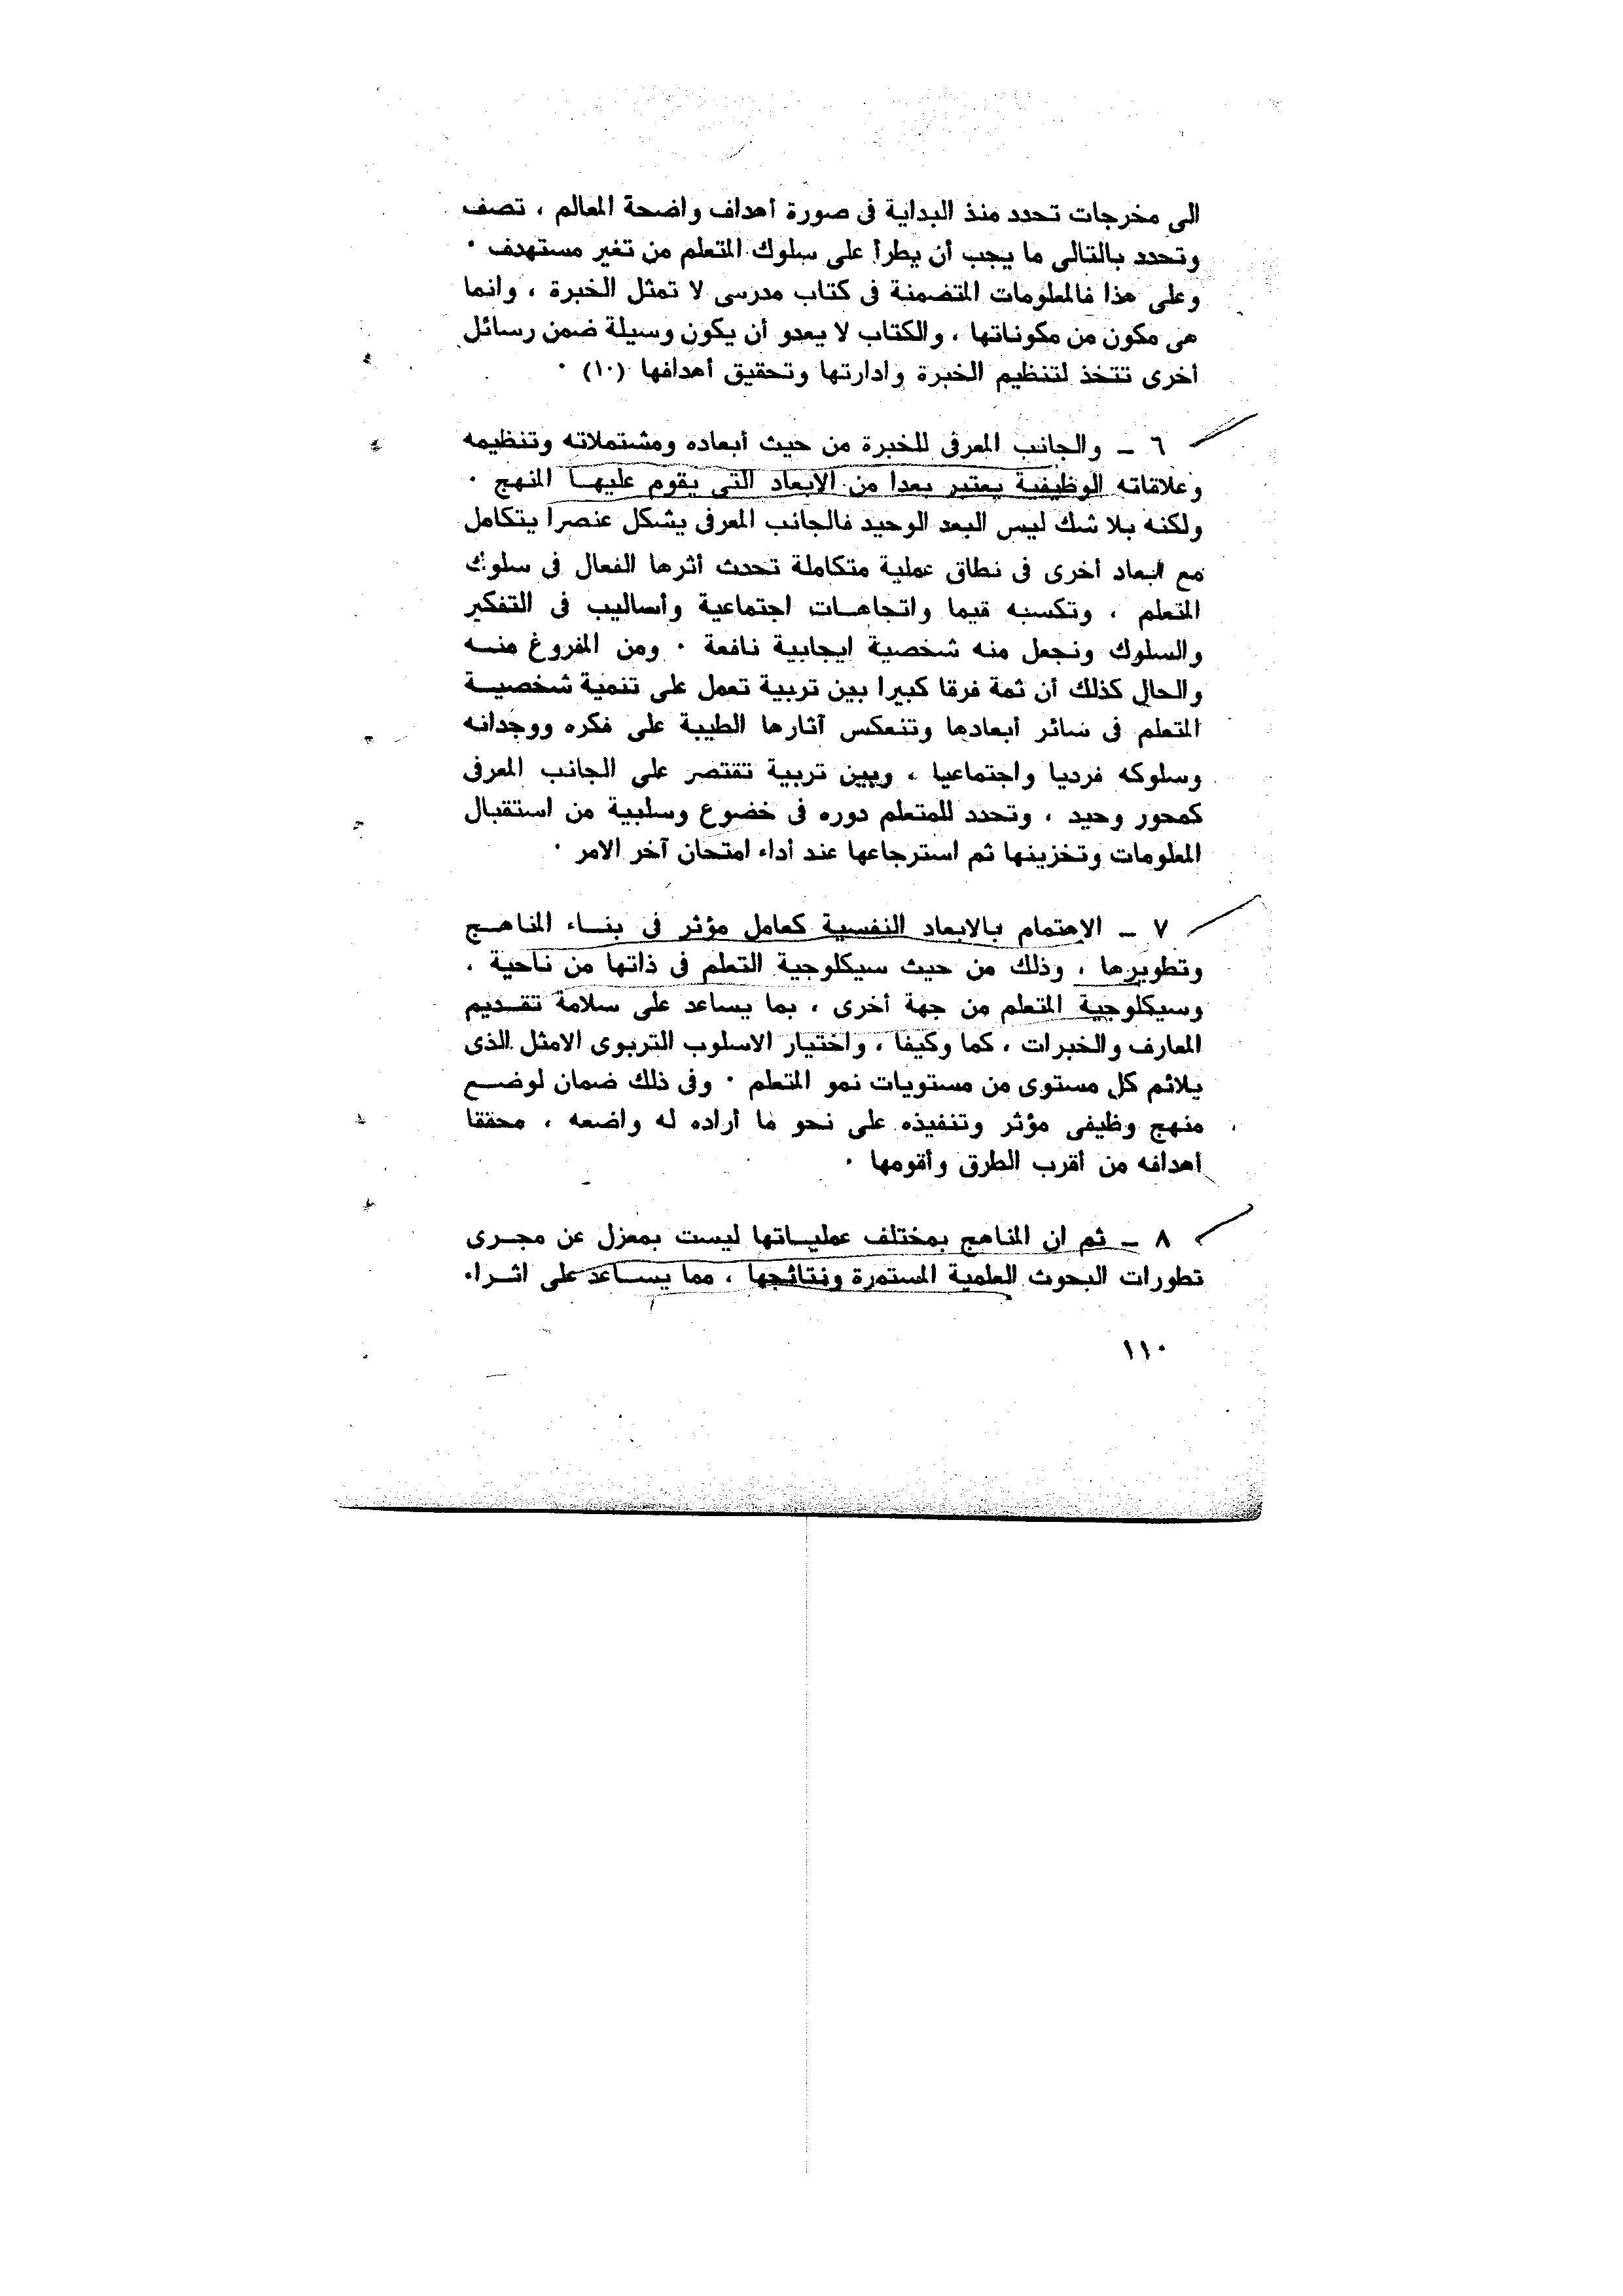 الى مخرجات تحدد منذ البداية فى صورة أهداف واضحة المعالم ، تصف
وتحدد بالتالى ما يجب أن يطرأ على سلوك المتعلم من تغير مستهدف ·
وعلى هذا فالمعلومات المتضمنة فى كتاب مدرسى لا تمثل الخبرة ، وانما
هى مكون من مكوناتها ، والكتاب لا يعدو أن يكون وسيلة ضمن رسائل
أخرى تتخذ لتنظيم الخبرة وادارتها وتحقيق أهدافها (١٠) ·
٦ ـ والجانب المعرفى للخبرة من حيث أبعاده ومشتملاته وتنظيمه
وعلاقاته الوظيفية يعتبر بعدا من الابعاد التى يقوم عليهـا المنهج ·
ولكنه بلا شك ليس البعد الوحيد فالجانب المعرفى يشكل عنصرا يتكامل
مع ابعاد أخرى فى نطاق عملية متكاملة تحدث أثرها الفعال فى سلوك
المتعلم ، وتكسبه قيما واتجاهـات اجتماعية وأساليب فى التفكير
والسلوك ونجعل منه شخصية ايجابية نافعة · ومن المفروغ منـه
والحال كذلك أن ثمة فرقا كبيرا بين تربية تعمل على تنمية شخصيـة
المتعلم فى سائر أبعادها وتنعكس آثارها الطيبة على فكره ووجدانه
وسلوكه فرديا واجتماعيا ، وبين تربية تقتصر على الجانب المعرفى
كمحور وحيد ، وتحدد للمتعلم دوره فى خضوع وسلبية من استقبال
المعلومات وتخزينها ثم استرجاعها عند أداء امتحان آخر الامر ·
٧ ـ الاهتمام بالابعاد النفسية كعامل مؤثر فى بنـاء المناهـج
وتطويرها ، وذلك من حيث سيكلوجية التعلم فى ذاتها من ناحية ،
وسيكلوجية المتعلم من جهة أخرى ، بما يساعد على سلامة تقـديم
المعارف والخبرات ، كما وكيفا ، واختيار الاسلوب التربوى الامثل الذى
يلائم كل مستوى من مستويات نمو المتعلم · وفى ذلك ضمان لوضـع
منهج وظيفى مؤثر وتنفيذه على نحو ما أراده له واضعه ، محققا
أهدافه من أقرب الطرق وأقومها ·
٨ ـ ثم ان المناهج بمختلف عمليـاتها ليست بمعزل عن مجـرى
تطورات البحوث العلمية المستمرة ونتائجها ، مما يسـاعد على اثـراء
١١٠